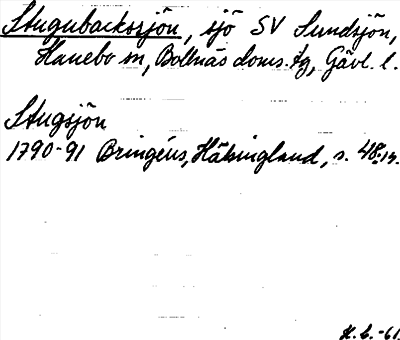 Stugubackssjön, sjö SV Sundsjön,
Hanebo sn, Bollnäs doms. tg, Gävl. l.
Stugsjön
1790-91 Bringéus, Hälsingland, s. 48:19.
H. L. -61.